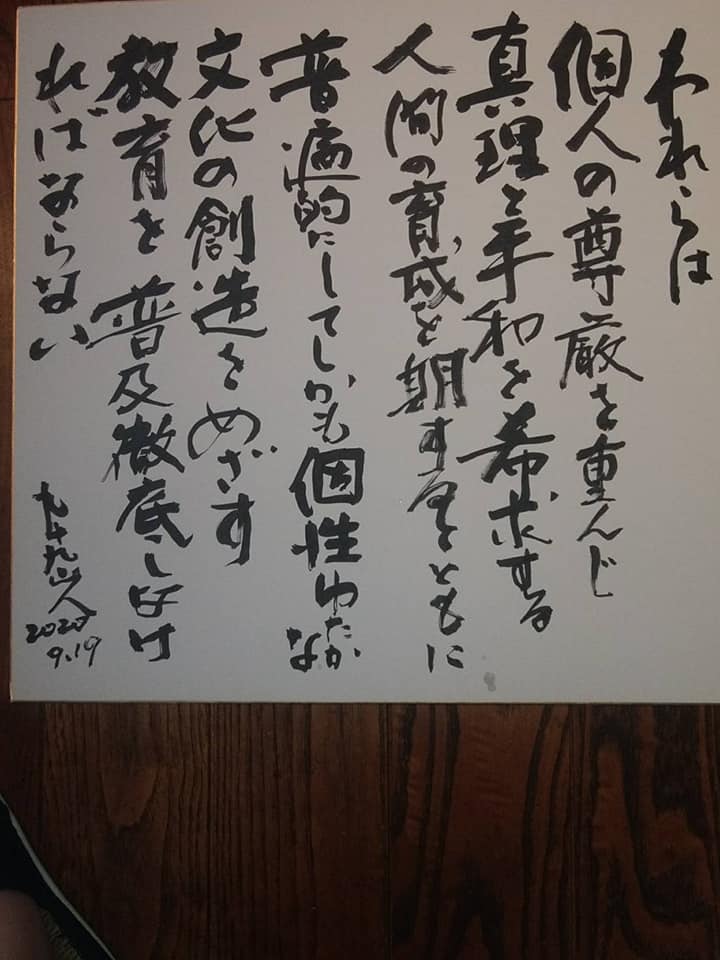 われらは
個人の尊厳を重んじ
真理と平和を希求する
人間の育成を期するとともに
普遍的にしてしかも個性ゆたかな
文化の創造をめざす
教育を普及徹底しなけ
ればならない
九十九山人
2020
9.19